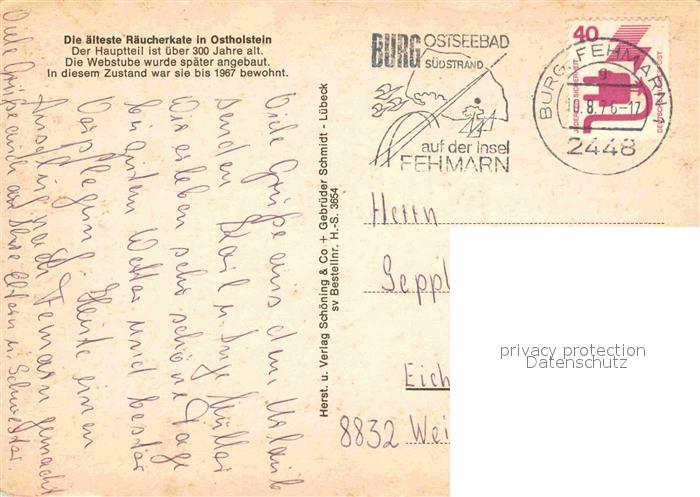 Die älteste Räucherkate in Ostholstein
Der Hauptteil ist über 300 Jahre alt.
Die Webstube wurde später angebaut.
In diesem Zustand war sie bis 1967 bewohnt.
BURG OSTSEEBAD
SÜDSTRAND
auf der Insel
FEHMARN
40
DEUTSCHE BUNDESPOST
BURG, FEHMARN
8.76-17
2448
Viele Grüße aus dem Urlaub
senden Karl u. Inge Müller
Wir erleben sehr schöne Tage
bei gutem Wetter und bester
Verpflegung. Heute einen
nach Femarn gemacht
Viele Grüße auch an Ihre Eltern u. Schwester
Herst. u. Verlag Schöning & Co + Gebrüder Schmidt - Lübeck
sv Bestellnr. H.-S. 3654
Herrn
Seppl
Eich
8832 Wei
privacy protection
Datenschutz